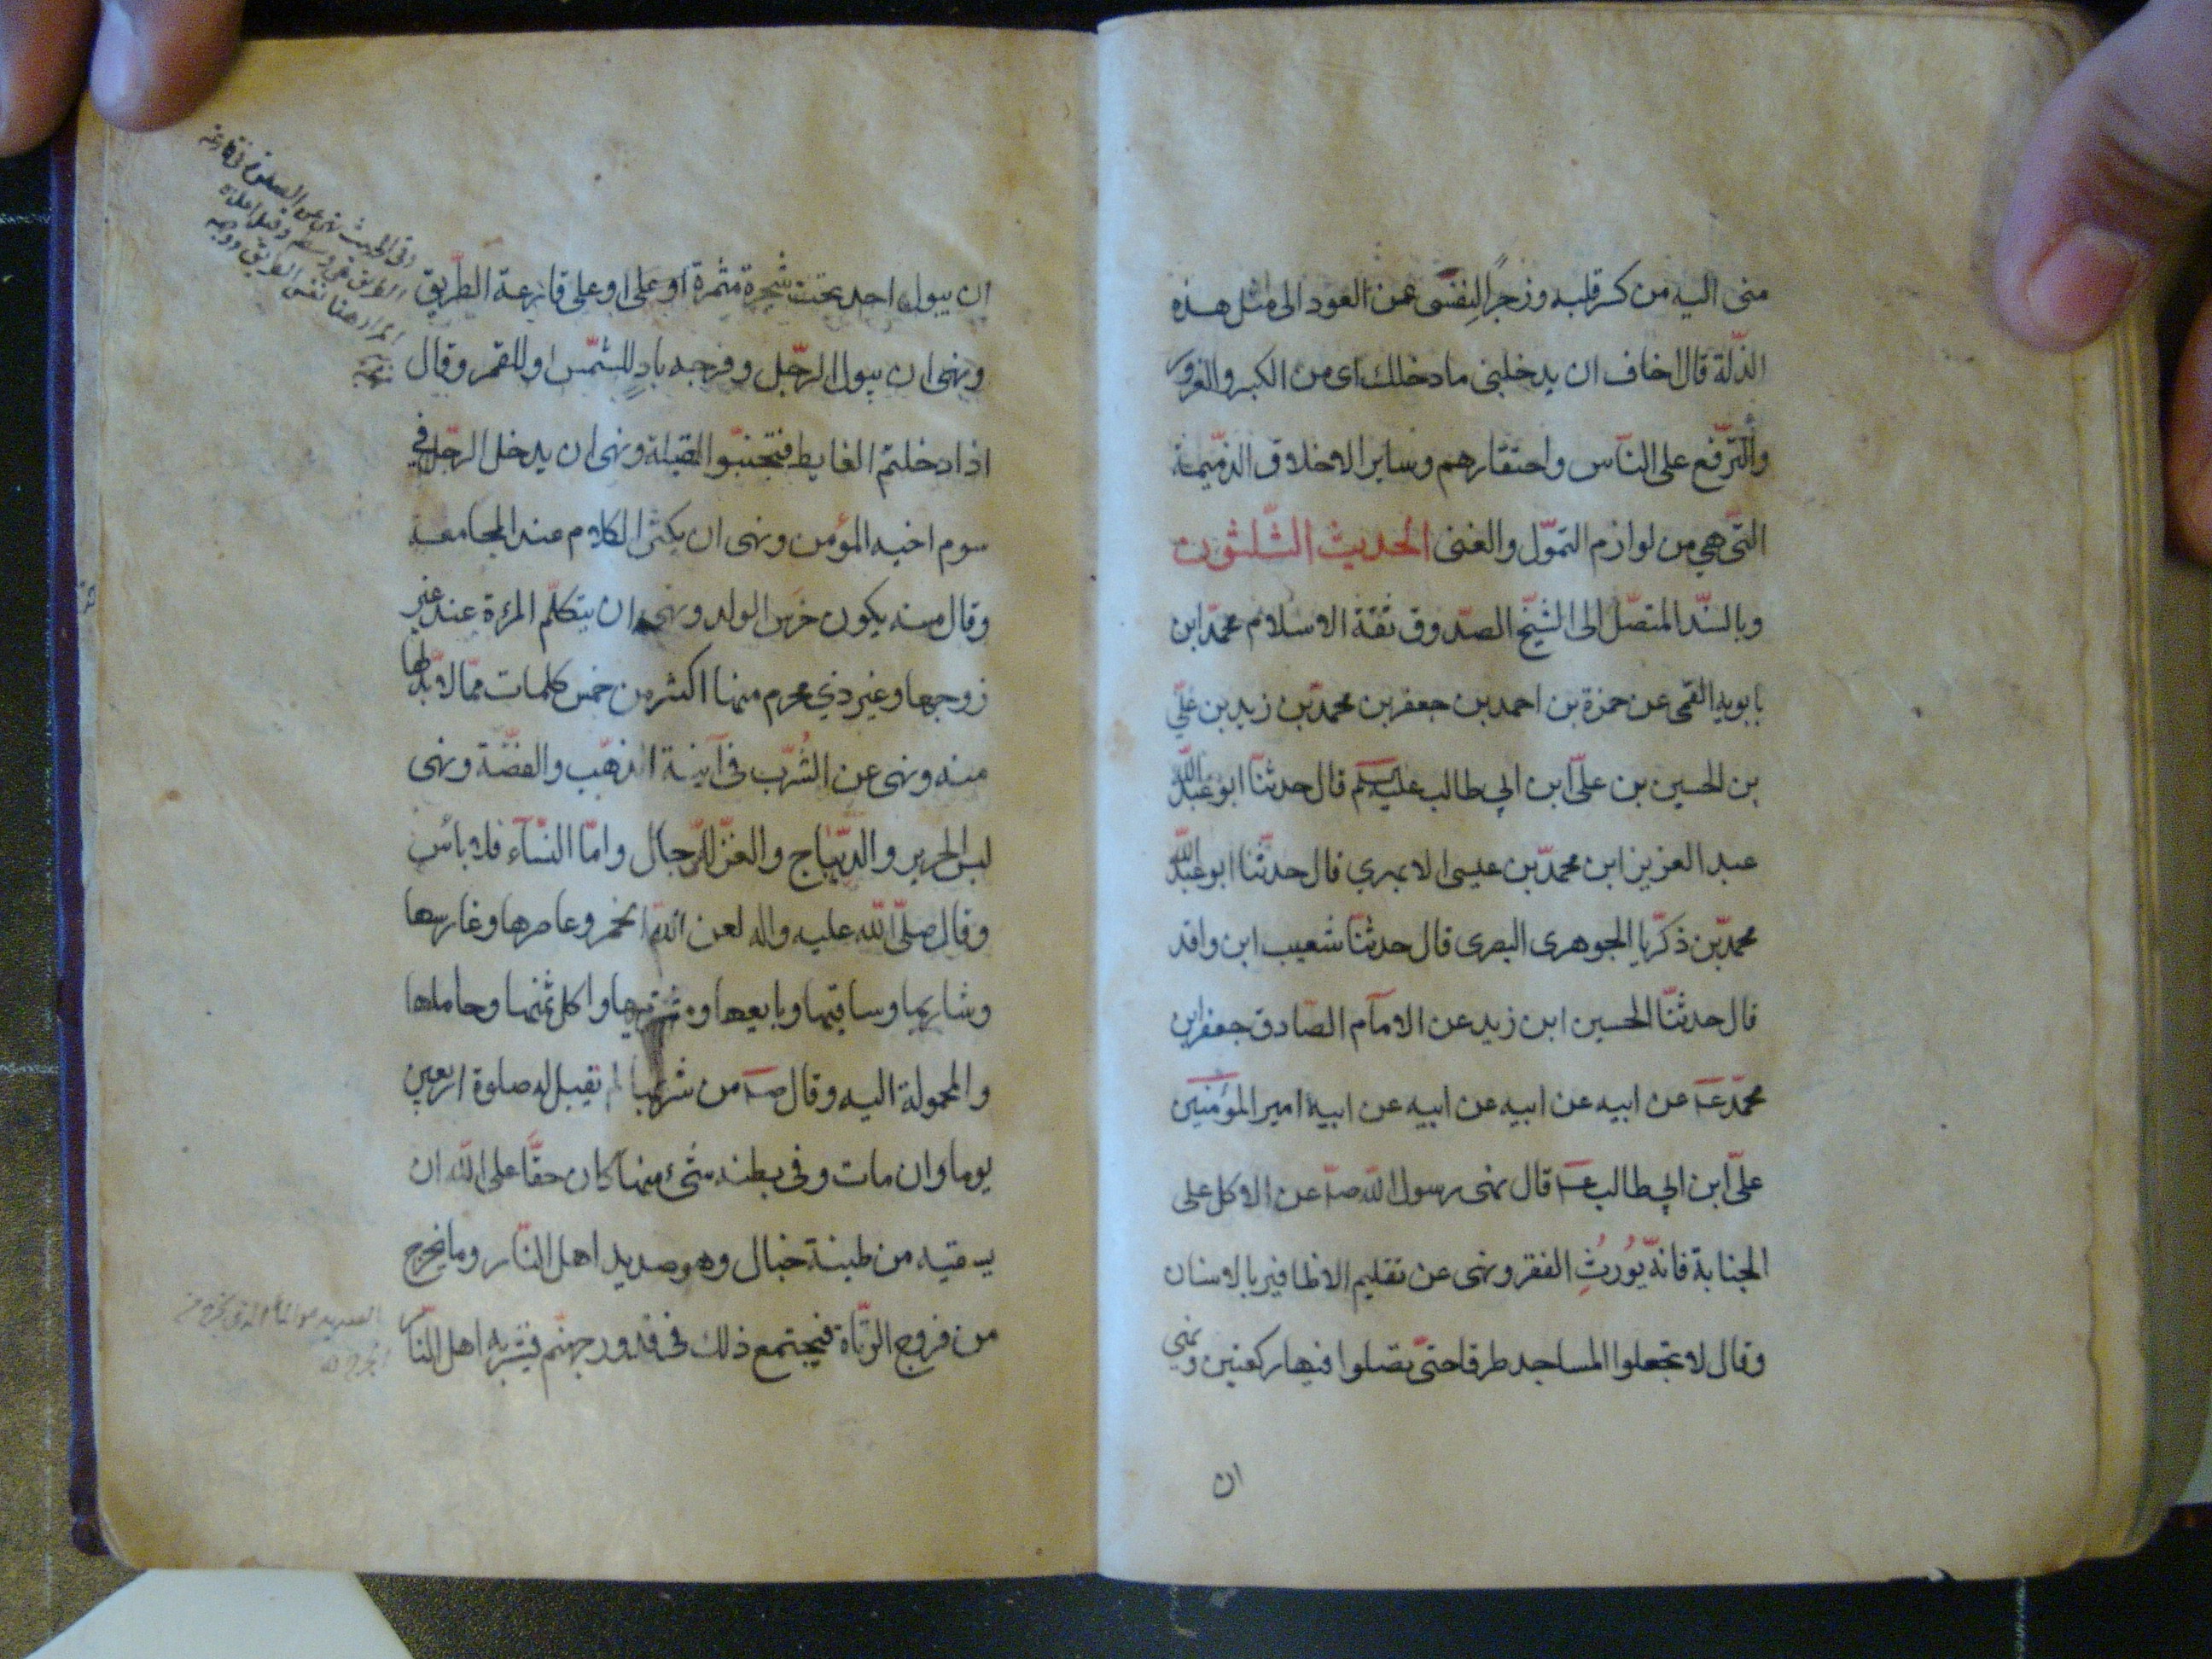 منى اليه من كسر قلبه وزجرًا لِنفسى عن العود الى مثل هذه
الذّلة قال اخاف ان يدخلنى ما دخلك اى من الكبر والغرور
والتّرفّع على النّاس واحتقارهم وساير الاخلاق الذّميمة
التّى هي من لوازم التموّل والغنى الحديث الثّلثون
وبالسّند المتصّل الى الشّيخ الصّدوق ثقة الاسلام محمّد ابن
بابويه القمى عن حمزة بن احمد بن جعفر بن محمّد بن زيد بن علىّ
بن الحسين بن علىّ ابن ابي طالب عليهم قال حدثنا ابو عبد اللّه
عبد العزيز ابن محمّد بن عيسى الابهري قال حدثنّا ابو عبد اللّه
محمّد بن ذكّريا الجوهرى البصرى قال حدثنّا شعيب ابن واقد
قال حدثنّا الحسين ابن زيد عن الامآم الصّادق جعفر ابن
محمّد ع عن ابيه عن ابيه عن ابيه عن ابيه امير المؤمنين
علىّ ابن ابي طالب ع قال نهى رسول اللّه ص عن الاكل على
الجنابة فانّه يُورُثِ الفقر ونهى عن تقليم الاظافير بالاسنان
وقال لا تجعلوا المساجد طرقا حتىّ تصلوا فيها ركعتين ونهى
ان
ان يبول احد تحت شجرة مثمرة او على او على قارعة الطّريق
ونهى ان يبول الرجّل وفرجه بادٍ للشّمس او للقمر وقال
اذا دخلتم الغايط فتجنبّوا القبلة ونهى ان يدخل الرجّل في
سوم اخيه المؤمن ونهى ان يكثر الكلام عند المجامعة
وقال منه يكون خرس الولد ونهى ان يتكلّم المرءة عند غير
زوجها وغير ذي محرم منها اكثر من خمس كلمات ممّا لا بدّ لها
منه ونهى عن الشُرّب فى آنية الذهّب والفضّة ونهى
لبس الحرير والدّيباج والقزّ للرّجال وامّا النّسآء فلا باس
وقال صلّى اللّه عليه واله لعن اللّه الخمر وعاصرها وغارسها
وشاربها وساقيها وبايعها ومشتريها واكل ثمنها وحاملها
والمحمولة اليه وقال ص من شربها لم تقبل له صلوة اربعين
يوما وان مات وفى بطنه شئ منها كان حقّا على اللّه ان
يسقيه من طينة خبال وهو صديد اهل النّار وما يخرج
من فروج الزنّاة فيجتمع ذلك فى قدور جهنّم فيشربه اهل النّار
وفى الحديث نهى عن الصلوة فى قارعة
الطريق هى وسطه وقيل اعلاه
المراد هنا نفس الطريق ووجهه
الصديد هو الماء الذى يخرج من
الجرح